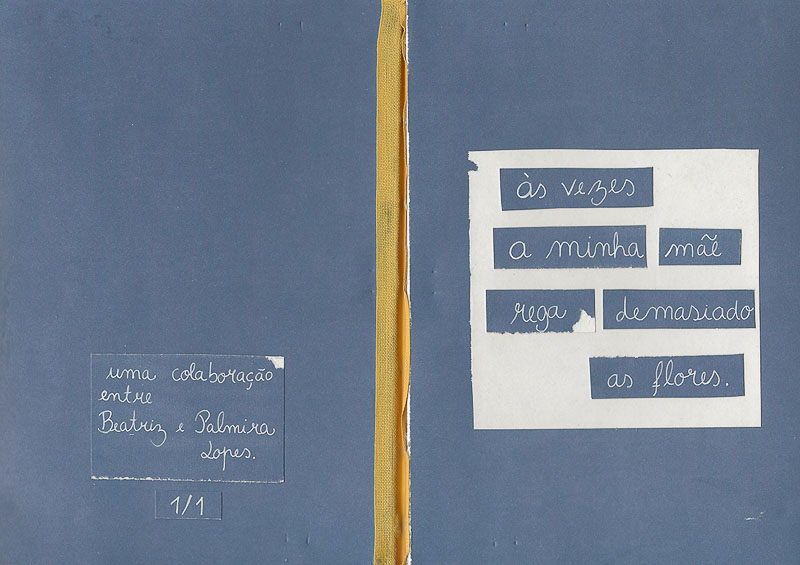 uma colaboração
entre
Beatriz e Palmira
Lopes.
1/1
às vezes
a minha mãe
rega demasiado
as flores.